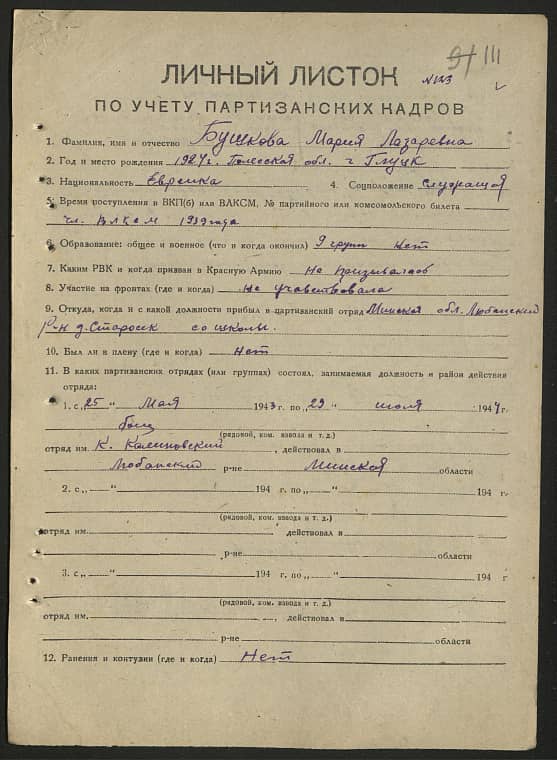 9/ III
ЛИЧНЫЙ ЛИСТОК №123
ПО УЧЕТУ ПАРТИЗАНСКИХ КАДРОВ
1. Фамилия, имя и отчество Бушкова Мария Лазаревна
2. Год и место рождения 1924г. Полесская обл. г Глуск
3. Национальность Еврейка 4. Соцположение служащая
5. Время поступления в ВКП(б) или ВЛКСМ, № партийного или комсомольского билета
чл. ВЛКСМ 1939 года
6. Образование: общее и военное (что и когда окончил) 9 групп нет
7. Каким РВК и когда призван в Красную Армию не призывалась
8. Участие на фронтах (где и когда) не участвовала
9. Откуда, когда и с какой должности прибыл в партизанский отряд Минская обл. Любанский
р-н д. со школы.
10. Был ли в плену (где и когда) Нет
11. В каких партизанских отрядах (или группах) состоял, занимаемая должность и район действия
отряда:
1. с „25 “ Мая 1943 г. по „29 “ июля 1944г.
боец
(рядовой, ком. взвода и т. д.)
отряд им К. Калиновский, действовал в
Любанский р-не Минская области
2. с „ “ 194 г. по „ “ 194 г.
(рядовой, ком. взвода и т. д.)
отряд им. действовал в
р-не области
3. с „ “ 194 г. по „ “ 194 г
(рядовой, ком. взвода и т. д.)
отряд им. , действовал в
р-не области
12. Ранения и контузии (где и когда) Нет